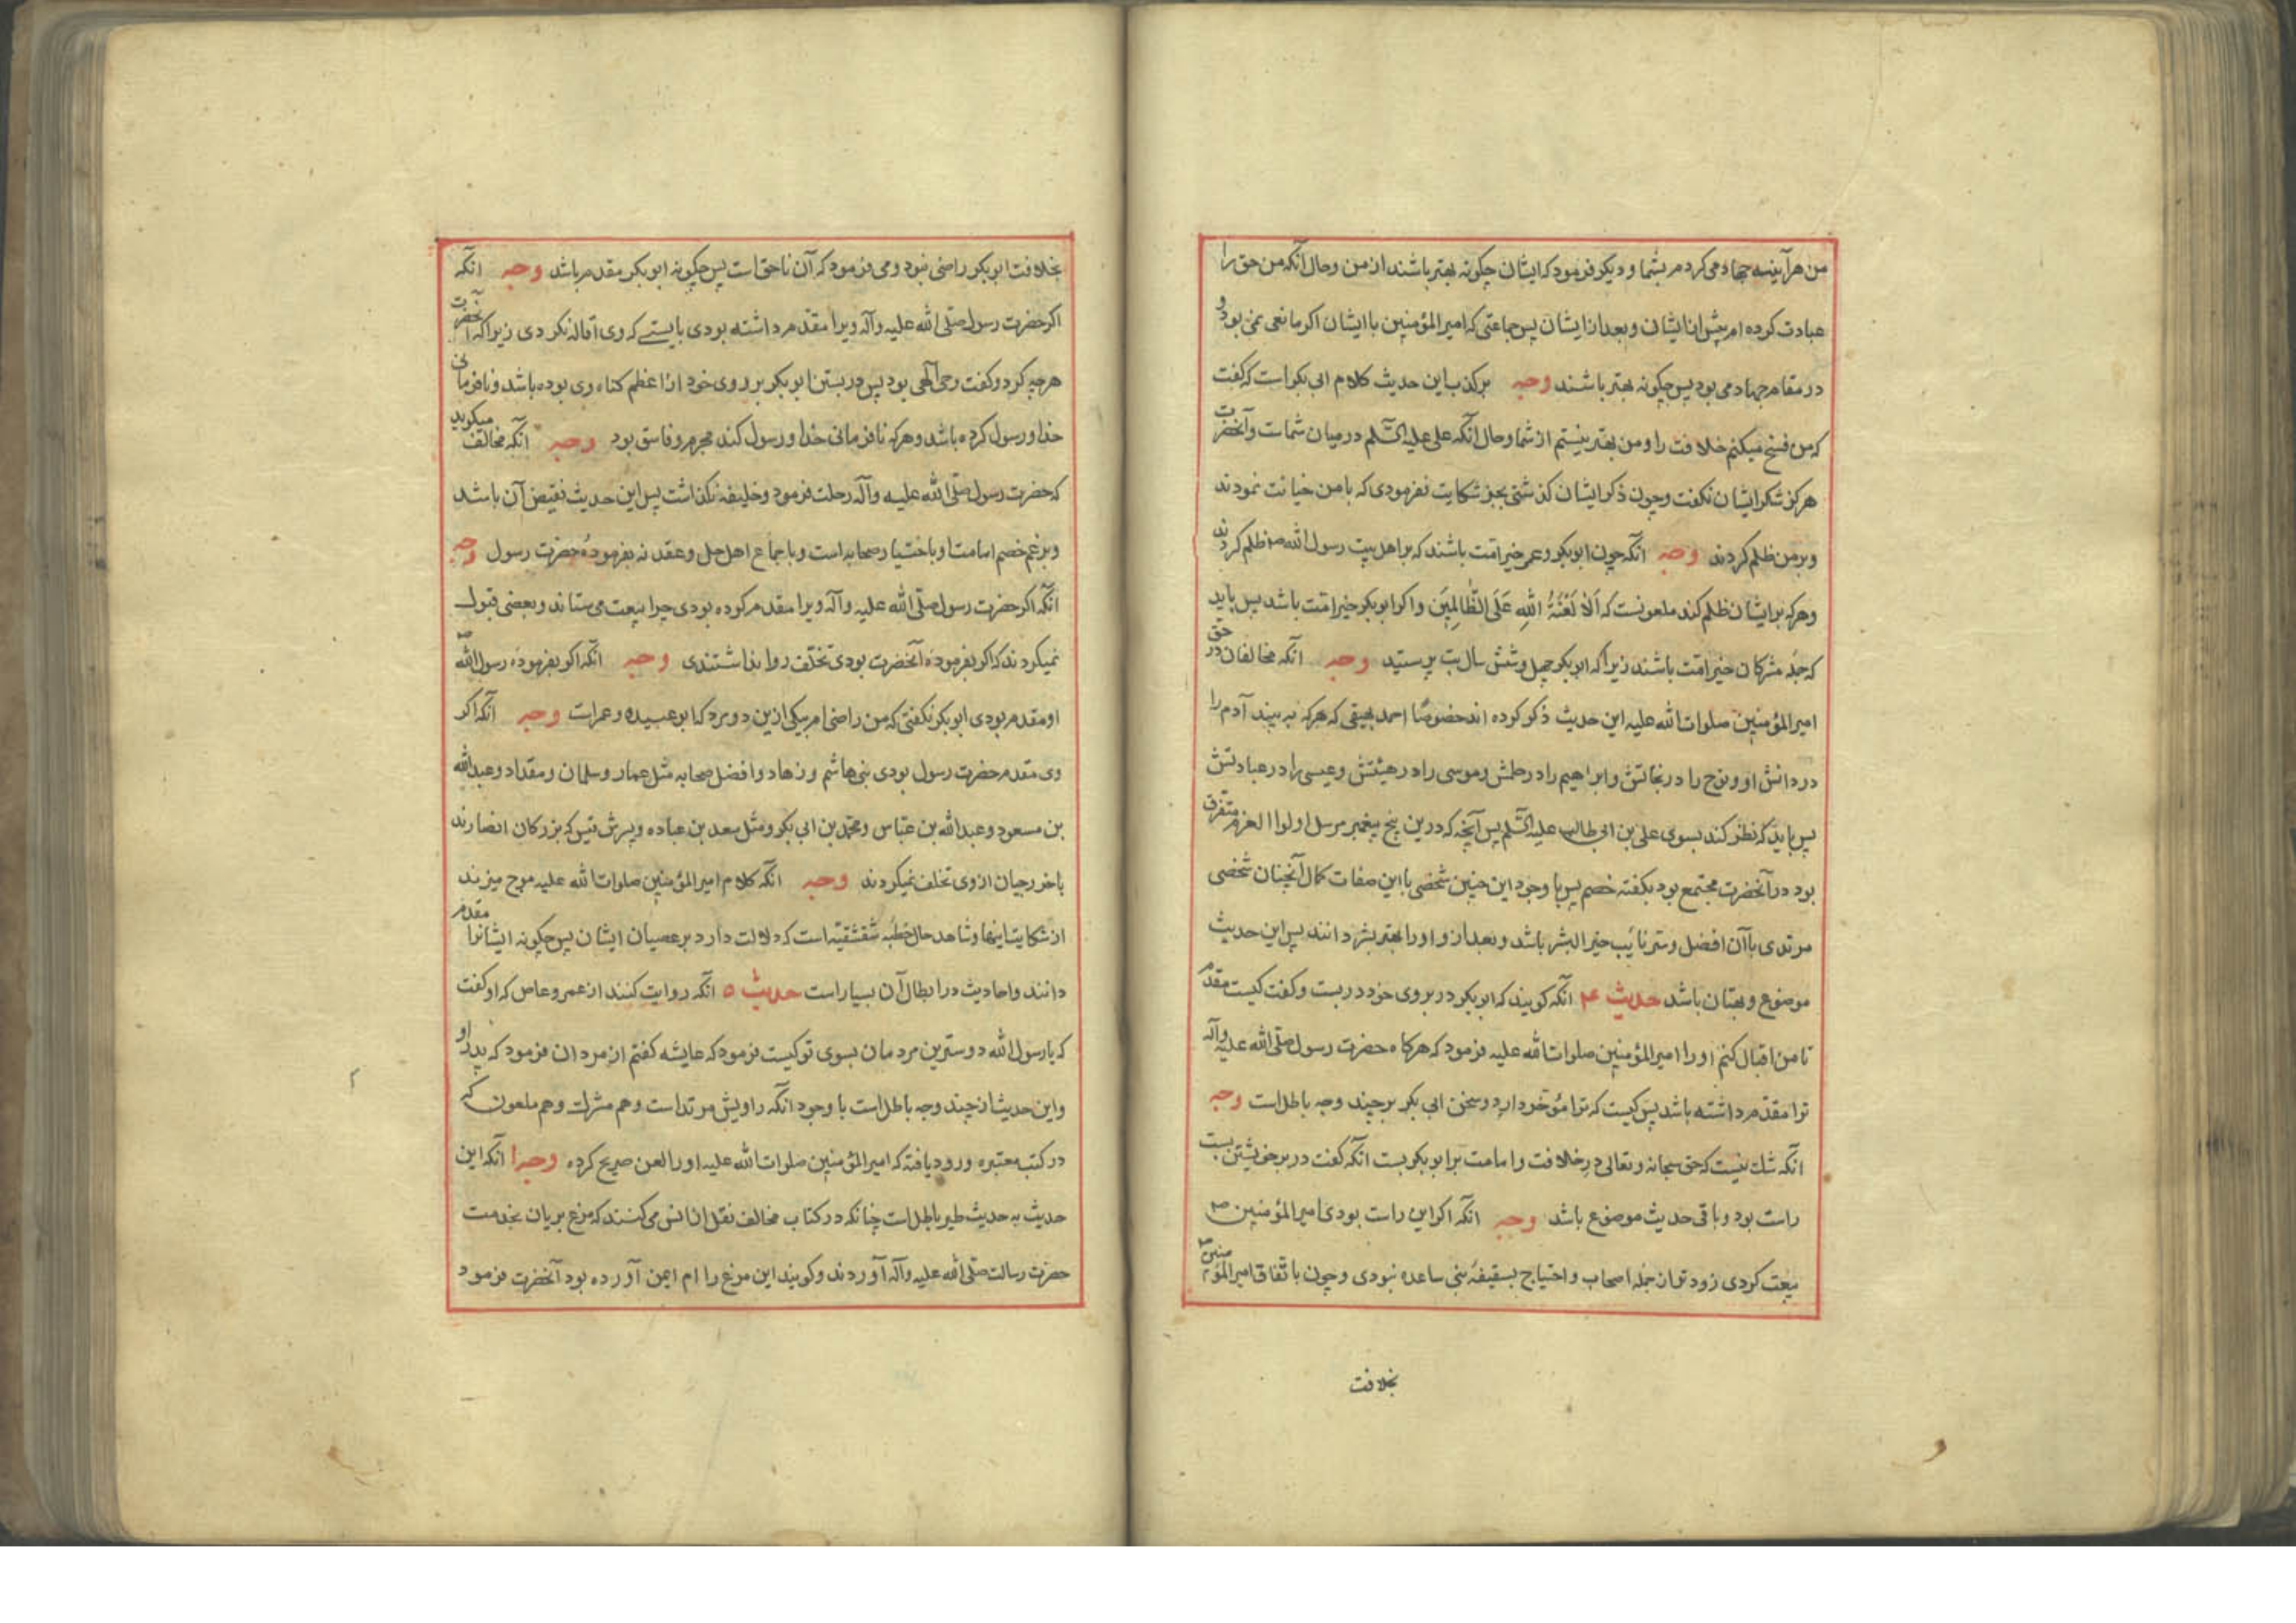 من هرآینه جهاد می کردم بشما و دیکر فرمود که ایشان چکونه بهتر باشند از من و حال آنکه من حق را
عبادت کرده ام پیش از ایشان و بعد از ایشان پس جماعتی که امیر المؤمنین با ایشان اکر مانعی نمی بود و
در مقام جهاد می بود پس چکونه بهتر باشند وجه بر کذب این حدیث کلام ابی بکر است که کفت
که من فسخ میکنم خلافت را و من بهتر نیستم از شما و حال آنکه علی علیه السّلم در میان شماست و آنحضرت
هرکز شکر ایشان نکفت و چون ذکر ایشان کذشتی بجز شکایت نفرمودی که با من خیانت نمودند
و بر من ظلم کردند وجه انکه چون ابو بکر و عمر خیر امّت باشند که بر اهل بیت رسول الله ص ظلم کردند
و هرکه بر ایشان ظلم کند ملعونست که اَلَا لَعْنَةُ اللهِ عَلَی الظّالِمِیَن و اکر ابو بکر خیر امّت باشد پس باید
که جدّ مشرکان خیر امّت باشند زیرا که ابو بکر چهل و شش سال بت پرستید وجه انکه مخالفان در حق
امیر المؤمنین صلوات الله علیه این حدیث ذکر کرده اند خصوصًا احمد بیهقی که هرکه به بیند آدم را
در دانش او و نوح را در نجاتش و ابراهیم را در حلمش و موسی را در هیبتش و عیسی را در عبادتش
پس باید که نظر کند بسوی علی بن ابی طالب علیه السّلم پس آنچه که درین پنج پیغمبر مرسل اولوا العزم متفرق
بود در آنحضرت مجتمع بود بکفته خصم پس با وجود این چنین شخصی با این صفات کمال آنچنان شخصی
مرتدی با آن افضل و سر نائب خیر البشر باشد و بعد از و او را بهتر بشر دانند پس این حدیث
موضوع و بهتان باشد حدیث ۴ انکه کویند که ابو بکر در بروی خود در بست و کفت کیست مقدم
تا من اقبال کنم او را امیر المؤمنین صلوات الله علیه فرمود که هرکاه حضرت رسول صلّی الله علیه وآله
ترا مقدّم داشته باشد پس کیست که ترا مؤخر دارد و سخن ابی بکر بر چند وجه باطل است وجه
انکه شک نیست که حق سبحانه و تعالی در خلافت و امامت بر ابو بکر بست انکه کفت در بر خویشتن بست
راست بود و باقی حدیث موضوع باشد وجه انکه اکر این راست بودی امیر المؤمنین ص
بیعت کردی زودتر از جمله اصحاب و احتیاج بسقیفه بنی ساعده نبودی و چون باتّفاق امیر المؤمنین
بخلافت
بخلافت ابو بکر راضی نبود و می فرمود که آن ناحق است پس چکونه ابو بکر مقدم باشد وجه انکه
اکر حضرت رسول صلّی الله علیه وآله ویرا مقدّم داشته بودی بایستے که وی اقاله نکردی زیرا که آنحضرت
هرچه کرد و کفت وحی آلهی بود پس در بستن ابو بکر بر روی خود از اعظم کناه وی بوده باشد و نافرمانی
خدا و رسول کرده باشد و هرکه نافرمانی خدا و رسول کند مجرم و فاسق بود وجه انکه مخالف میکوید
که حضرت رسول صلّی الله علیه وآله رحلت فرمود و خلیفه نکذاشت پس این حدیث نقیض آن باشد
و بر غم خصم امامت او باختیار صحابه است و باجماع اهل حل و عقد نه بفرمودهٔ حضرت رسول وجه
انکه اکر حضرت رسول صلّی الله علیه وآله ویرا مقدم کرده بودی چرا بیعت می ستاند و بعضی قبول
نمیکردند که اکر بفرموده آنحضرت بودی تخلّف روا نداشتندی وجه انکه اکر بفرموده رسول الله ص
او مقدم بودی ابو بکر نکفتی که من راضی ام بیکی ازین دو مرد که ابو عبیده و عمر است وجه انکه اکر
وی مقدم حضرت رسول بودی بنی هاشم و زهاد و افضل صحابه مثل عمار و سلمان و مقداد و عبد الله
بن مسعود و عبد الله بن عبّاس و محمّد بن ابی بکر و مثل سعد بن عباده و پسرش قیس که بزرکان انصارند
باخزرجیان از وی تخلف نمیکردند وجه انکه کلام امیر المؤمنین صلوات الله علیه موج میزند
از شکایت اینها و شاهد حال خطبه شقشقیّه است که دلالت دارد بر عصیان ایشان پس چکونه ایشانرا مقدم
دانند و احادیث در ابطال آن بسیار است حدیث ۵ انکه روایت کنند از عمرو عاص که او کفت
که یا رسول الله دوسترین مردمان بسوی تو کیست فرمود که عایشه کفتم از مردان فرمود که پدر او
و این حدیث از چند وجه باطل است با وجود انکه راویش مرتد است و هم مشرک و هم ملعون که
در کتب معتبره ورود یافته که امیر المؤمنین صلوات الله علیه او را لعن صریح کرده وجه ا انکه این
حدیث به حدیث طیر باطل است چنانکه در کتاب مخالف نقل از انس می کنند که مرغ بریان بخدمت
حضرت رسالت صلّی الله علیه وآله آوردند و کویند این مرغ را ام ایمن آورده بود آنحضرت فرمود